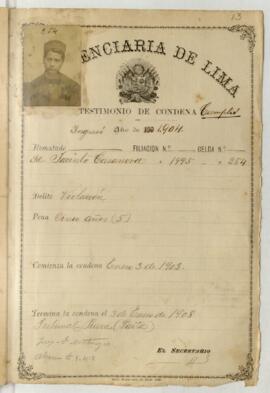 13
254
PENITENCIARIA DE LIMA
TESTIMONIO DE CONDENA Cumplió
Ingresó Año de 190 1904
Rematado FILIACIÓN N.º CELDA N.º
de Jacinto Casanova 1995 254
Delito Violación
Pena Cinco años (5)
Comienza la condena Enero 3 de 1903.
Termina la condena el 3 de Enero de 1908
Tribunal Piura (Paita)
EL SECRETARIO